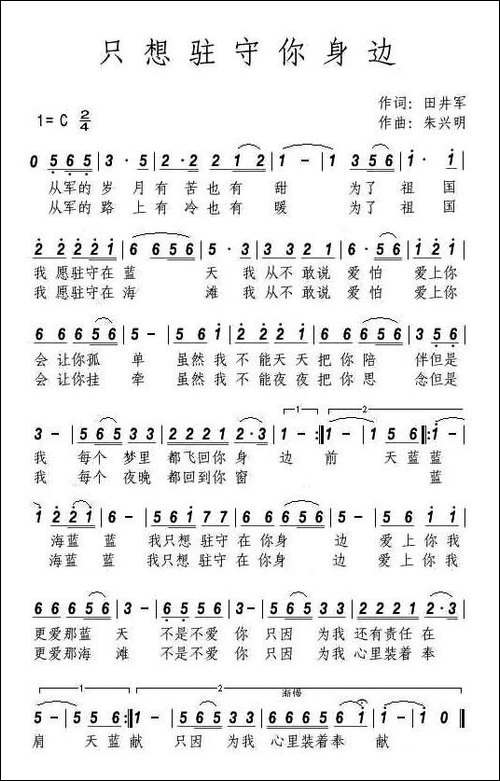 只想驻守你身边
作词：田井军
1= C 2/4
作曲：朱兴明
0 5 6 5 | 3 · 5 | 2 · 2 2 1 2 | 1 - | 1 3 5 6 | 1 · 1 |
从军的 岁 月 有 苦也有 甜 为了 祖 国
从军的 路 上 有 冷也有 暖 为了 祖 国
2 2 2 2 1 | 6 6 5 6 | 5 · 3 | 3 3 · 2 3 5 | 6 · 5 6 | 1 2 1 |
我 愿驻守在 蓝 天 我 从不 敢说 爱怕 爱上你
我 愿驻守在 海 滩 我 从不 敢说 爱怕 爱上你
6 6 6 5 6 | 5 - | 5 5 6 1 | 2 2 2 1 | 6 6 6 5 6 | 3 5 6 |
会 让你孤 单 虽然我 不能天天 把你陪 伴但是
会 让你挂 牵 虽然我 不能夜夜 把你思 念但是
3 - | 5 6 5 3 3 | 5 6 6 1 | 2 · 3 | 1 - :‖ 1 - | 1 5 6 ‖: 1 -
我 每个 梦里 都飞回你 身 边 前 天蓝 蓝
我 每个 夜晚 都回到你 窗 蓝
1 2 2 1 | 5 6 1 7 7 | 6 6 5 6 | 5 - | 5 6 1 1 |
海蓝 蓝 我只想 驻守 在 你身 边 爱 上你 我
海蓝 蓝 我只想 驻守 在 你身 边 爱 上你 我
6 6 6 5 6 | 3 - | 6 5 5 6 | 1 · 3 | 5 6 5 3 3 | 2 2 2 1 | 2 · 3 |
更爱那蓝 天 不是不爱 你 只因 为我 还有责任 在
更爱那海 滩 不是不爱 你 只因 为我 心里装着 奉
渐慢
5 - | 5 5 6 :‖ 1 - | 1 5 6 | 5 6 5 3 3 | 5 6 5 6 6 1 | 1 - | 1 0 ‖
肩 天蓝 献 只因 为我 心里装着奉 献